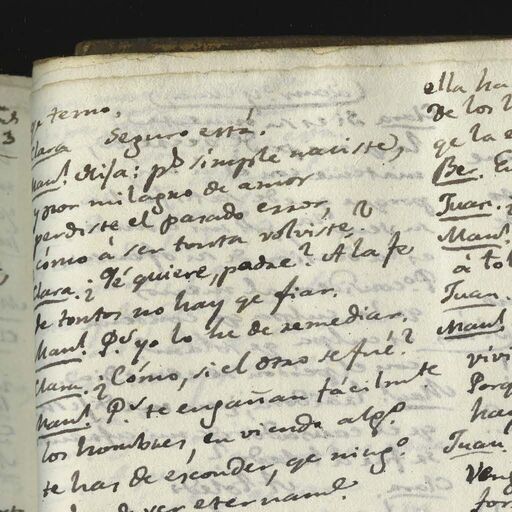 qe temo.
Clara Seguro está.
Man.l Hija: ps. simple naciste,
y por milagro de amor
perdiste el pasado error,
cómo á ser tonta volviste?
Clara. ¿Qé quiere, padre? A la fe
de tontos no hay qe fiar.
Man.l Ps. yo lo he de remediar.
Clara. ¿Cómo, si el otro se fué?
Man.l Ps. te engañan fácilmte
los hombres, en viendo algo.
te has de esconder, qe ningo.
ver eternam.e
ella ha
de los
qe la e
Ber. E
Juan.
Man.l
á to
Juan.
Man.l
vivi
Porq
hay
Juan
Veng
for